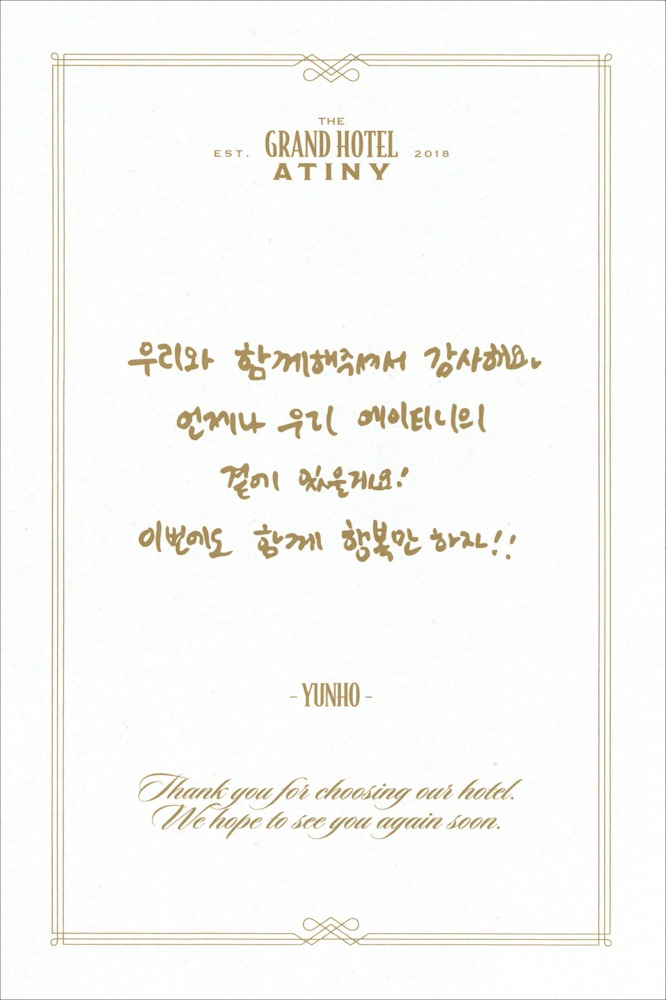 THE
EST. GRAND HOTEL 2018
ATINY
우리와 함께해주셔서 감사해요.
언제나 우리 에이티니의
곁에 있을게요!
이번에도 함께 행복만 하자!!
- YUNHO -
Thank you for choosing our hotel.
We hope to see you again soon.